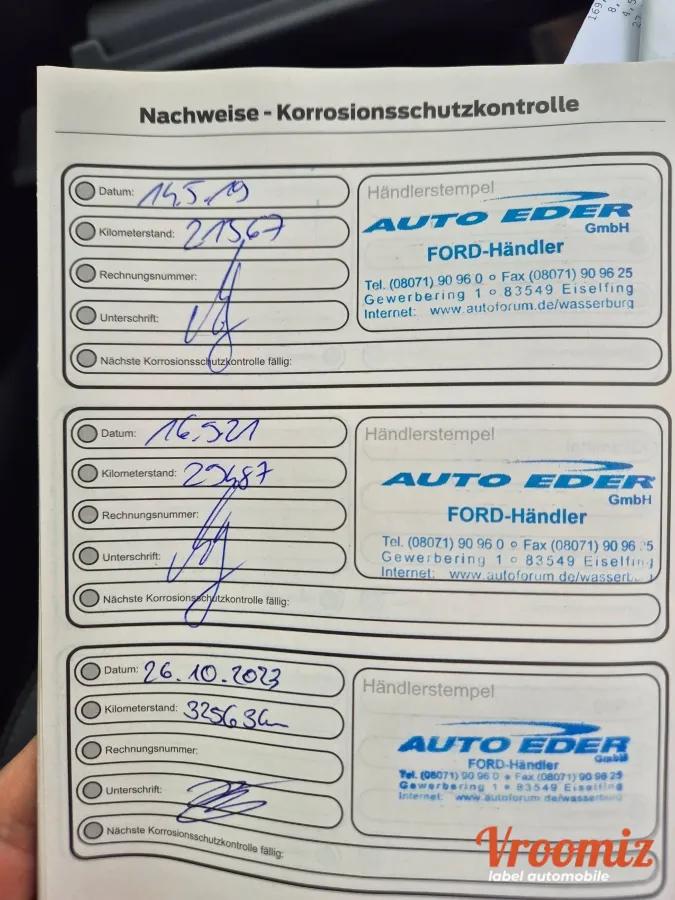 169,
8,
4,5
27
Nachweise - Korrosionsschutzkontrolle
Datum: 14.5.19
Kilometerstand: 21567
Rechnungsnummer:
Unterschrift:
Nächste Korrosionsschutzkontrolle fällig:
Händlerstempel
AUTO EDER
GmbH
FORD-Händler
Tel. (08071) 90 96 0 o Fax (08071) 90 96 25
Gewerbering 1 o 83549 Eiselfing
Internet: www.autoforum.de/wasserburg
Datum: 16.5.21
Kilometerstand: 25487
Rechnungsnummer:
Unterschrift:
Nächste Korrosionsschutzkontrolle fällig:
Händlerstempel
AUTO EDER
GmbH
FORD-Händler
Tel. (08071) 90 96 0 o Fax (08071) 90 96 5
Gewerbering 1 o 83549 Eiselfing
Internet: www.autoforum.de/wasserb
Datum: 26.10.2023
Kilometerstand: 32563km
Rechnungsnummer:
Unterschrift:
Nächste Korrosionsschutzkontrolle fällig:
Händlerstempel
AUTO EDER
GmbH
FORD-Händler
Tel. (08071) 90 96 0 o Fax (08071) 90 96 25
Gewerbering 1 o 83549 Eiselfing
Internet: www.autoforum.de/wasserburg
Vroomiz
label automobile